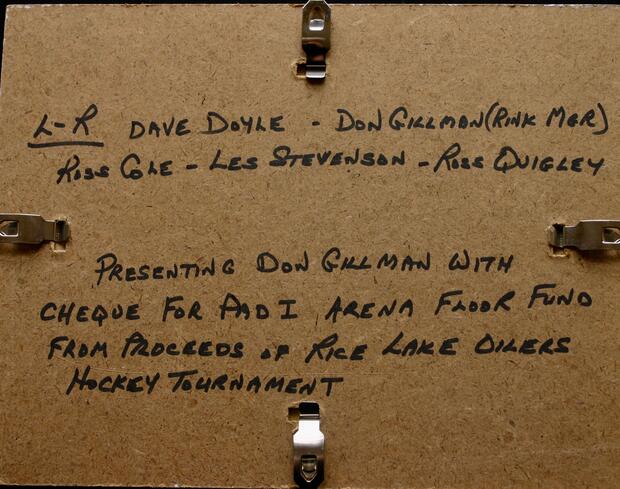 L-R DAVE DOYLE - DON GILLMAN (RINK MGR)
ROSS COLE - LES STEVENSON - ROSS QUIGLEY
PRESENTING DON GILLMAN WITH
CHEQUE FOR PAD I ARENA FLOOR FUND
FROM PROCEEDS OF RICE LAKE OILERS
HOCKEY TOURNAMENT